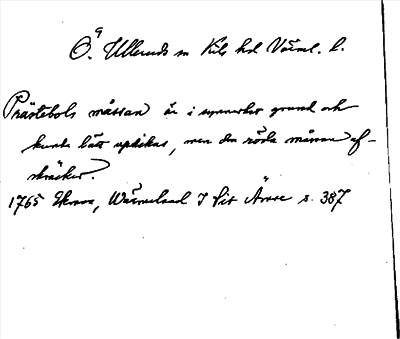 Ö. Ulleruds sn Kils hd Värml. l.
Prästebols måssan är i synnerhet grund och
kunde lätt updikas, men den röda måssan af-
skräcker.
1765 Fernow, Wärmeland I sit Ämne s. 387